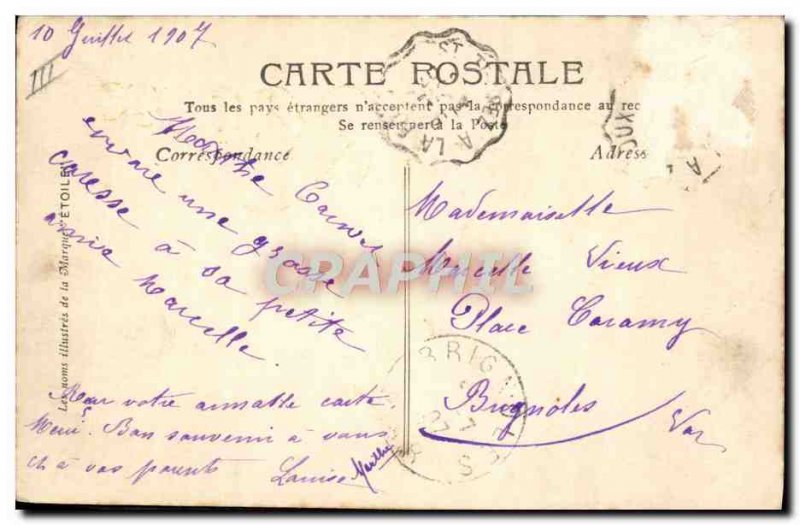 10 Juillet 1907
III
CARTE POSTALE
Tous les pays étrangers n'acceptent pas la correspondance au rec
Se renseigner à la Poste
Correspondance
Adress
Les noms illustrés de la Marque ÉTOILE
envoie une grosse
caresse à sa petite
amie Marcelle
votre aimable carte.
Merci. Bon souvenir à vous
et à vos parents
Louise Marthe
Mademoiselle
Marcelle Vieux
Place Caramy
Brignoles
Var
BRIG
CPRAPHIL